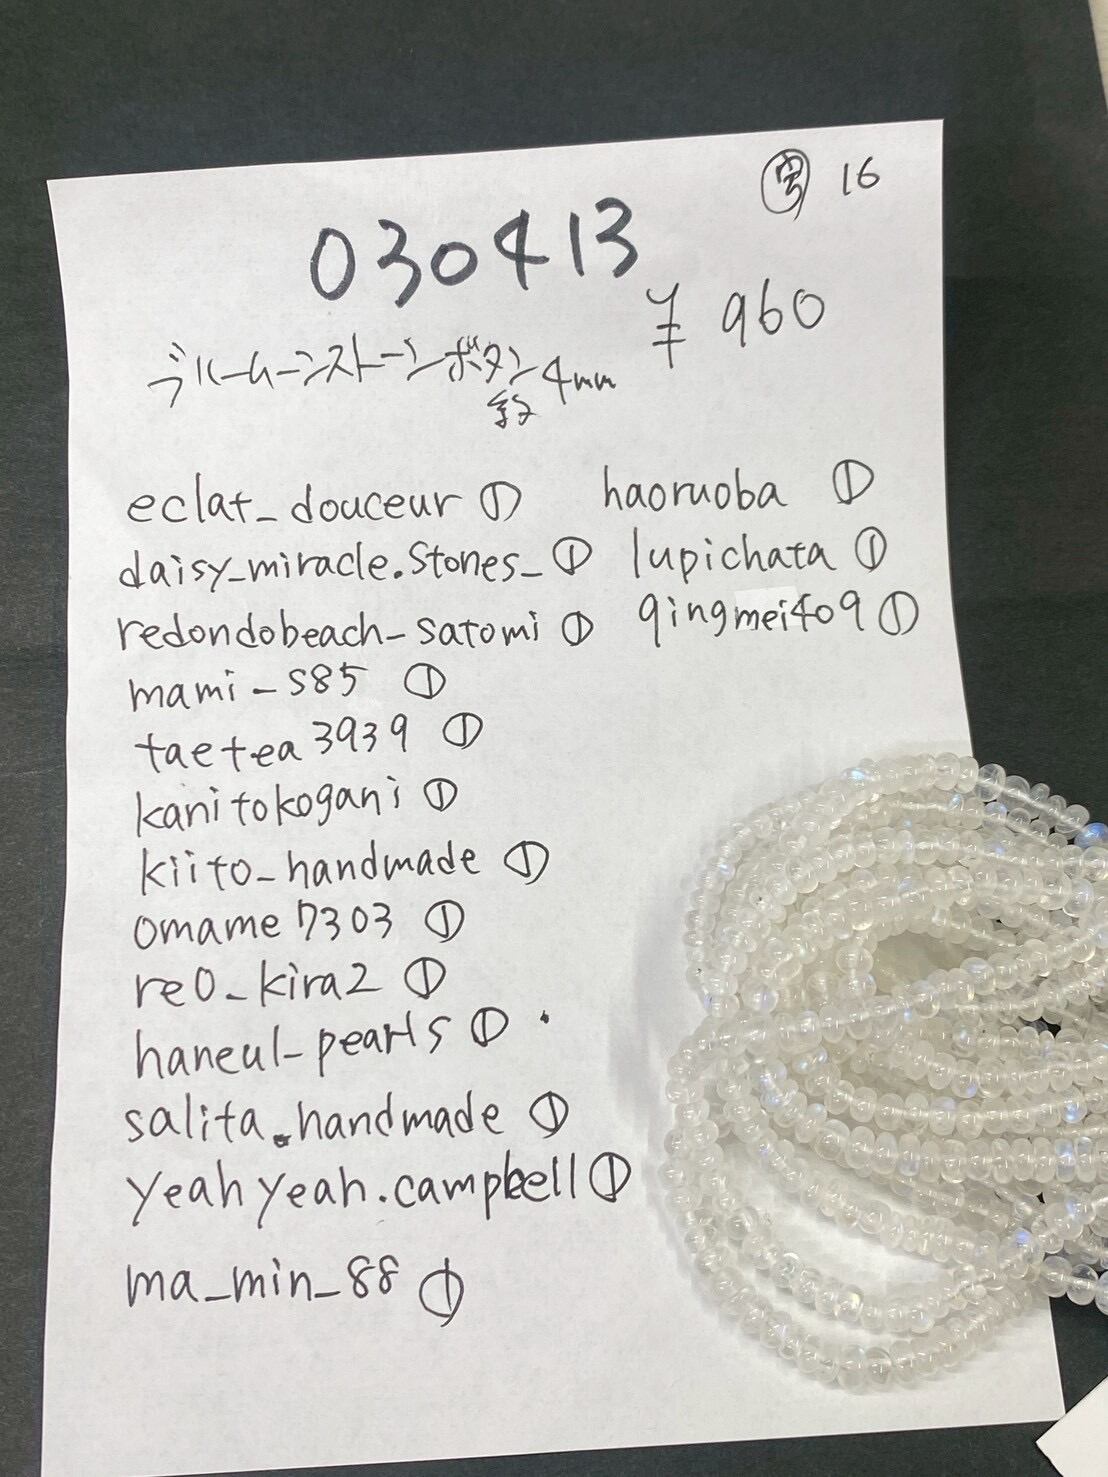 16
030413
¥960
ブルームーンストーンボタン4mm
eclat_douceur ①
daisy_miracle.stones_ ①
redondobeach_satomi ①
mami_s85 ①
taetea3939 ①
kanitokogani ①
kiito_handmade ①
omame7303 ①
re0_kira2 ①
haneul_pearls ①
salita.handmade ①
yeahyeah.campbell ①
ma_min_88 ①
haoruoba ①
lupichata ①
qingmei409 ①